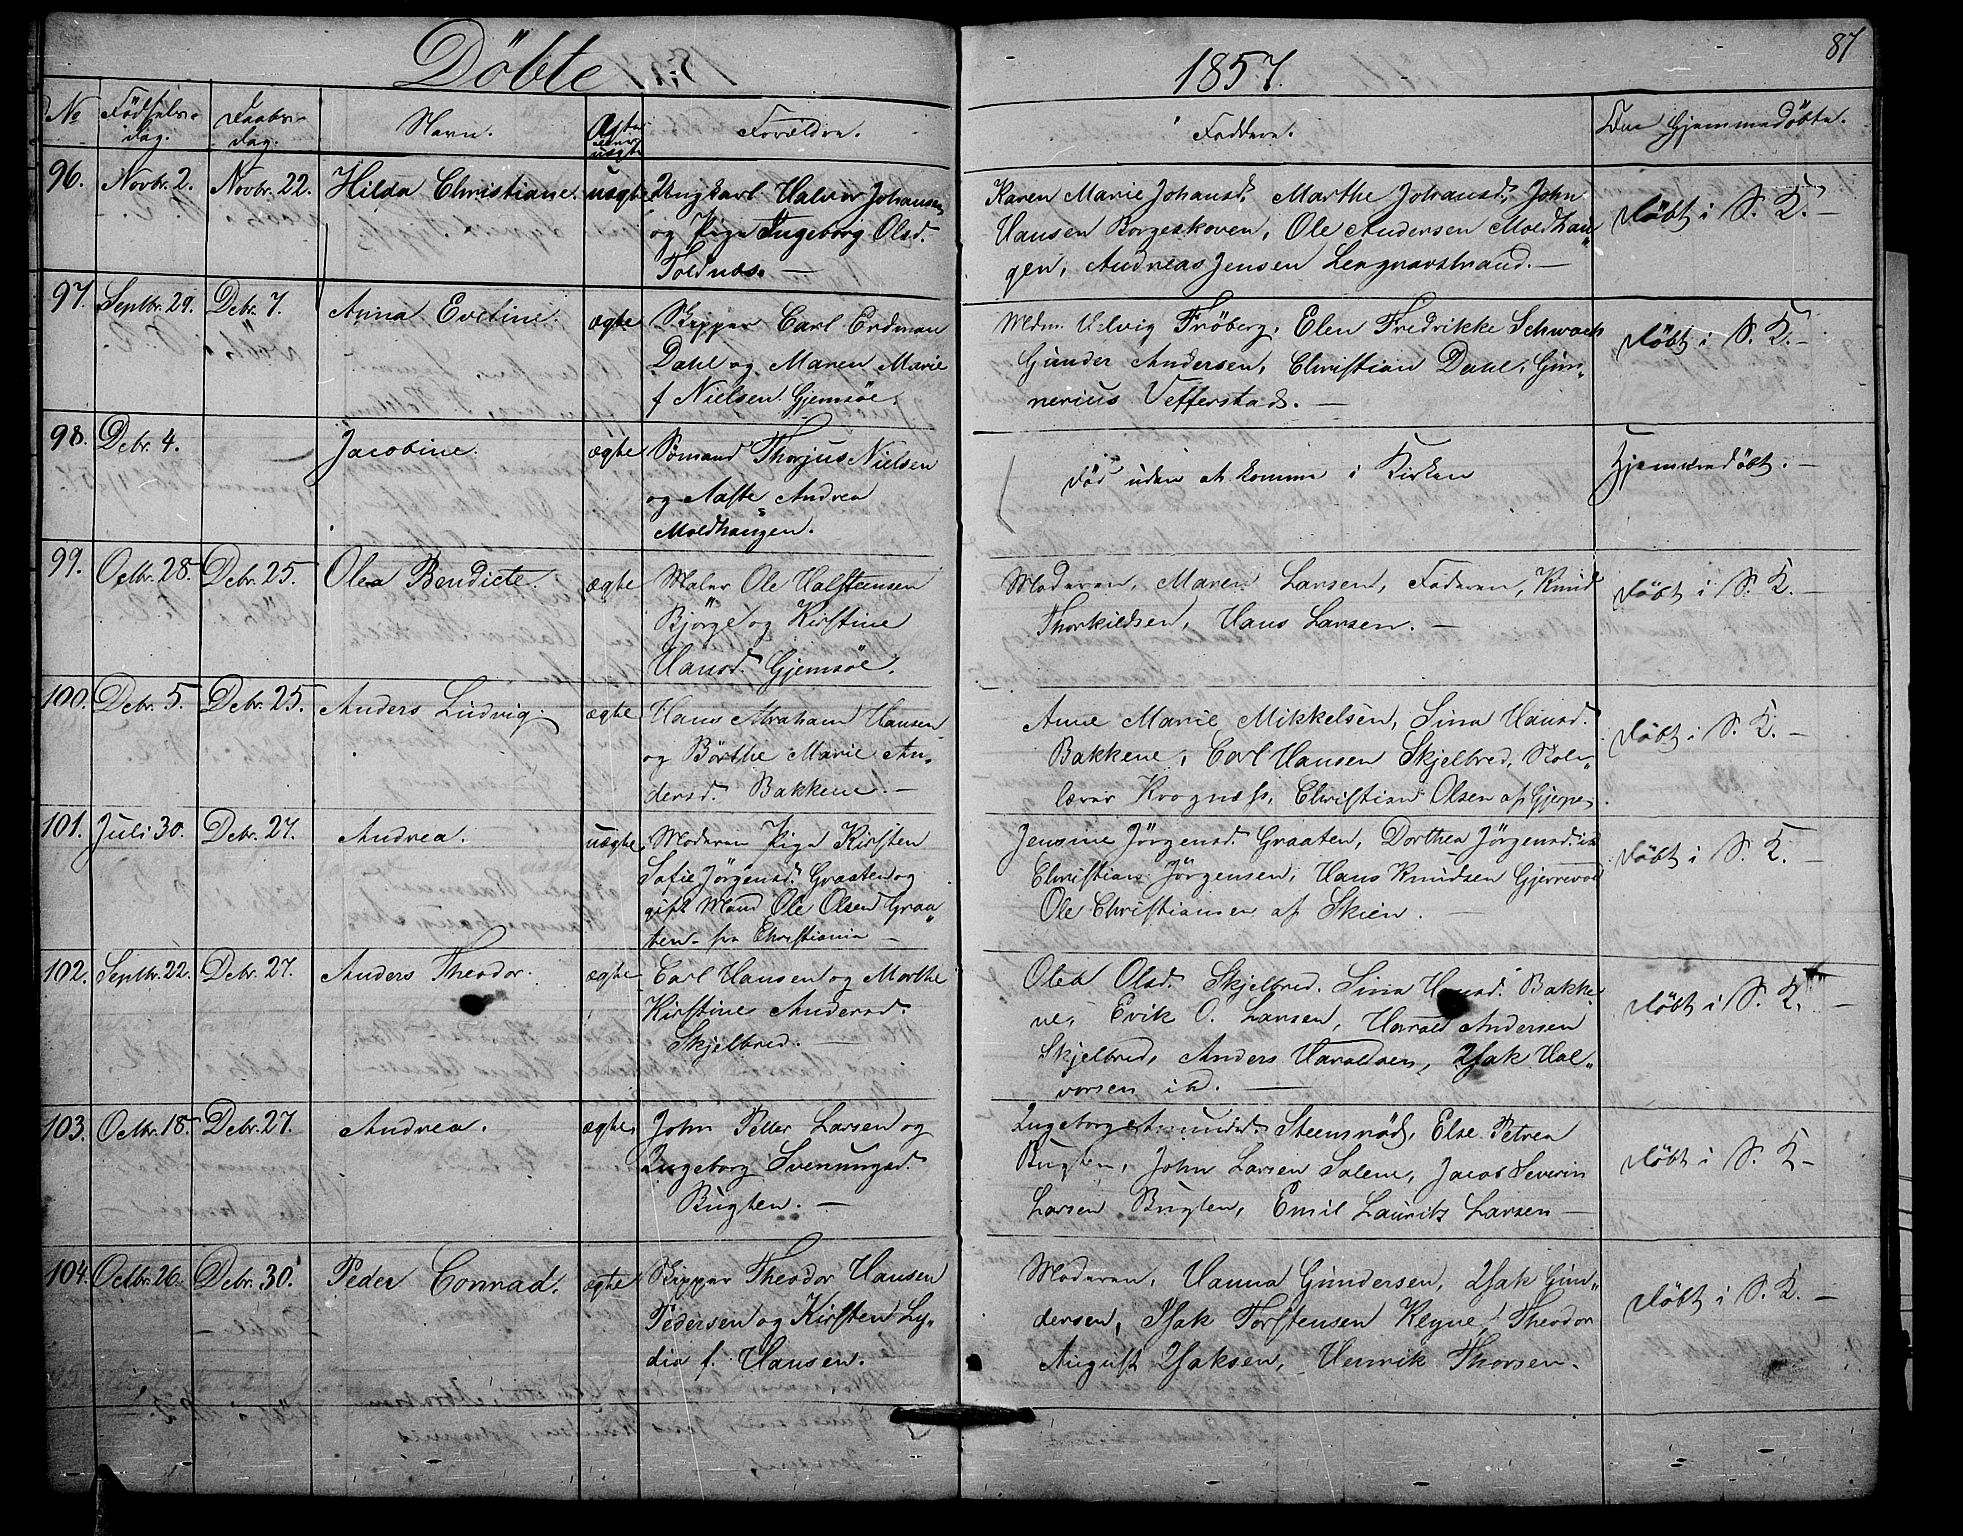 Döbte
1857.
87
No
Födsels-
dag.
Daabs-
dag.
Navn.
Ægte
eller
uægte
Forældre.
Faddere.
Om Hjemmedöbte.
96. Novbr. 2. Novbr. 22. Hilda Christiane. uægte Ungkarl Halvor Johansen
og Pige Ingeborg Olsd.
Toldnæs. —
Karen Marie Johansd., Marthe Johansd., John
Hansen Borgeskoven, Ole Andersen Moldhau„
gen, Andreas Jensen Lengnarstrand. —
döbt i S. K. —
97. Septbr. 29. Debr. 7. Anna Evetine. ægte Skipper Carl Erdman
Dahl og Maren Marie
f Nielsen. Gjemsöe.
Mdm. Helvig Fröberg, Elen Fredrikke Schwach
Gunder Andersen, Christian Dahl, Gun„
nerius Vefferstad. —
döbt i S. K. —
98. Debr. 4. Jacobine. ægte Sömand Thorjus Nielsen
og Aaste Andrea
Moldhaugen.
död uden at komme i Kirken
Hjemmedöbt. —
99. Octbr. 28. Debr. 25. Olea Bendicte. ægte Maler Ole Halfteensen
Björge og Kirstine
Hansd. Gjemsöe.
Moderen, Maren Larsen, Faderen, Knud
Thorkildsen, Hans Larsen. —
döbt i S. K. —
100. Debr. 5. Debr. 25. Anders Ludvig. ægte Hans Abraham Hansen
og Börthe Marie An„
dersd. Bakkene. —
Anne Marie Mikkelsen, Sina Hansd.
Bakkene, Carl Hansen Skjelbred, Skole„
lærer Krogness, Christian Olsen af Gjerpe,
döbt i S. K. —
101. Juli 30. Debr. 27. Andrea. uægte Moderen Pige Kirsten
Sofie Jörgensd. Graaten og
gift Mand Ole Olsen Graa„
ten fra Christiania —
Jensine Jörgensd. Graaten, Dorthea Jörgensd. ibd
Christian Jörgensen, Hans Knudsen Gjerrevold
Ole Christiansen af Skien. —
döbt i S. K. —
102. Septbr. 22. Debr. 27. Anders Theodor. ægte Carl Hansen og Marthe
Kirstine Andersd.
Skjelbred. —
Olea Olsd. Skjelbred. Sina Hansd. Bakke
ne, Erik O. Larsen, Harald Andersen
Skjelbred, Anders Haraldsen, Isak Hal„
vorsen ibd. —
döbt i S. K. —
103. Octbr. 18. Debr. 27. Andrea. ægte John Peller Larsen og
Ingeborg Svenungsd.
Bugten. —
Ingeborg Amundsd. Steensröd, Else Petrea
Bugten, John Larsen Salene, Jacob Severin
Larsen Bugten, Emil Lauritz Larsen —
döbt i S. K —
104. Octbr. 26. Debr. 30. Peder Conrad. ægte Skipper Theodor Hansen
Pedersen og Kirsten Ly„
dia f. Hansen.
Moderen, Hanna Gundersen, Isak Gun„
dersen, Isak Torstensen Kleyne, Theodor
August Isaksen, Henrik Thorsen.
döbt i S. K. —